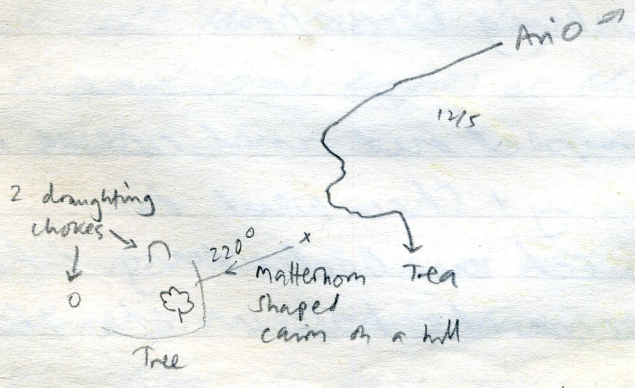 Ario
12/5
2 draughting
chokes
220°
x
Matterhorn
shaped
cairn on a hill
Trea
Tree